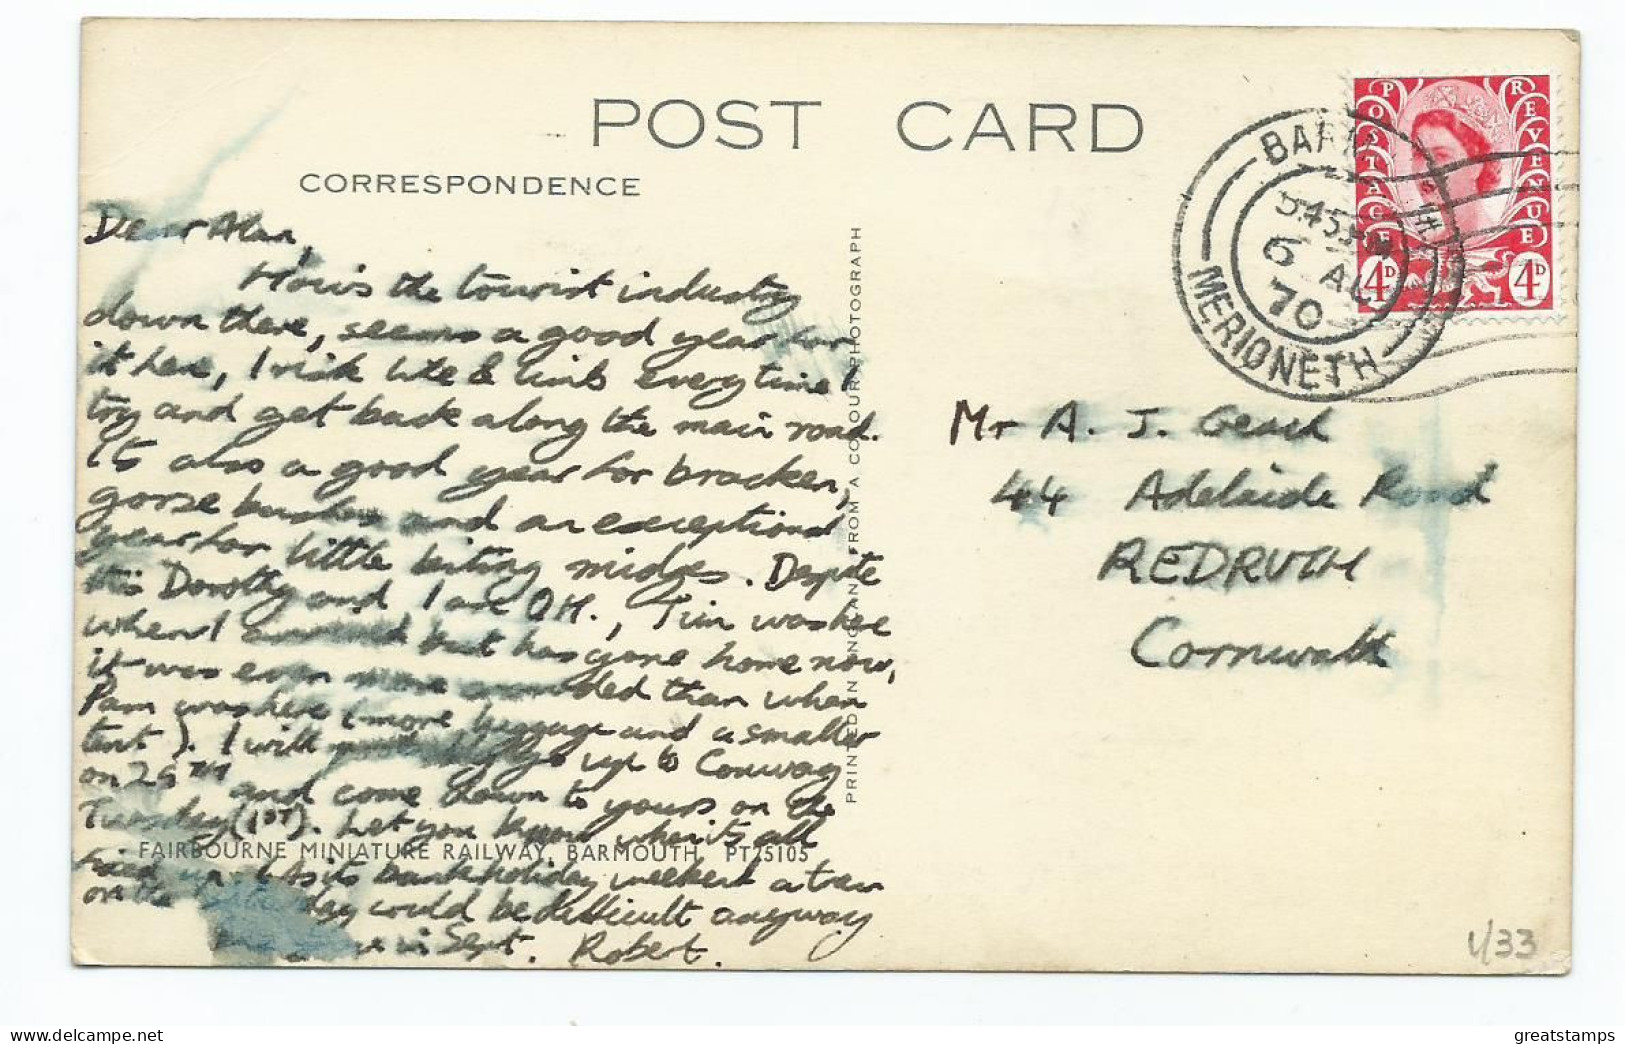 POST CARD
CORRESPONDENCE
Dear Alan,
How's the tourist industry
down there, seems a good year for
it here, I risk life & limb every time I
try and get back along the main road.
It's also a good year for bracken,
gorse bushes and an exceptional
year for little biting midges. Despite
this Dorothy and I are OK., Tim was here
when I arrived but has gone home now,
it was even more crowded than when
Pam was here (more luggage and a smaller
tent). I will probably go up to Conway
on 29TH and come down to yours on the
Tuesday (1ST). Let you know when it's all
fixed up. As its bank holiday weekend a train
on the day would be difficult anyway
in Sept. Robert.
FAIRBOURNE MINIATURE RAILWAY, BARMOUTH PT25105
PRINTED IN FROM A COLOUR PHOTOGRAPH
Mr A. J. Geach
44 Adelaide Road
REDRUTH
Cornwall
BARM
5.45 PM
6 AU
70
MERIONETH
POSTAGE REVENUE
4D 4D
1/33
greatstamps
www.delcampe.net